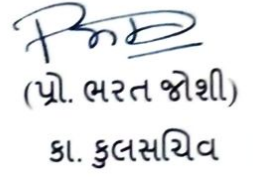 (પ્રો. ભરત જોશી)
કા. કુલસચિવ